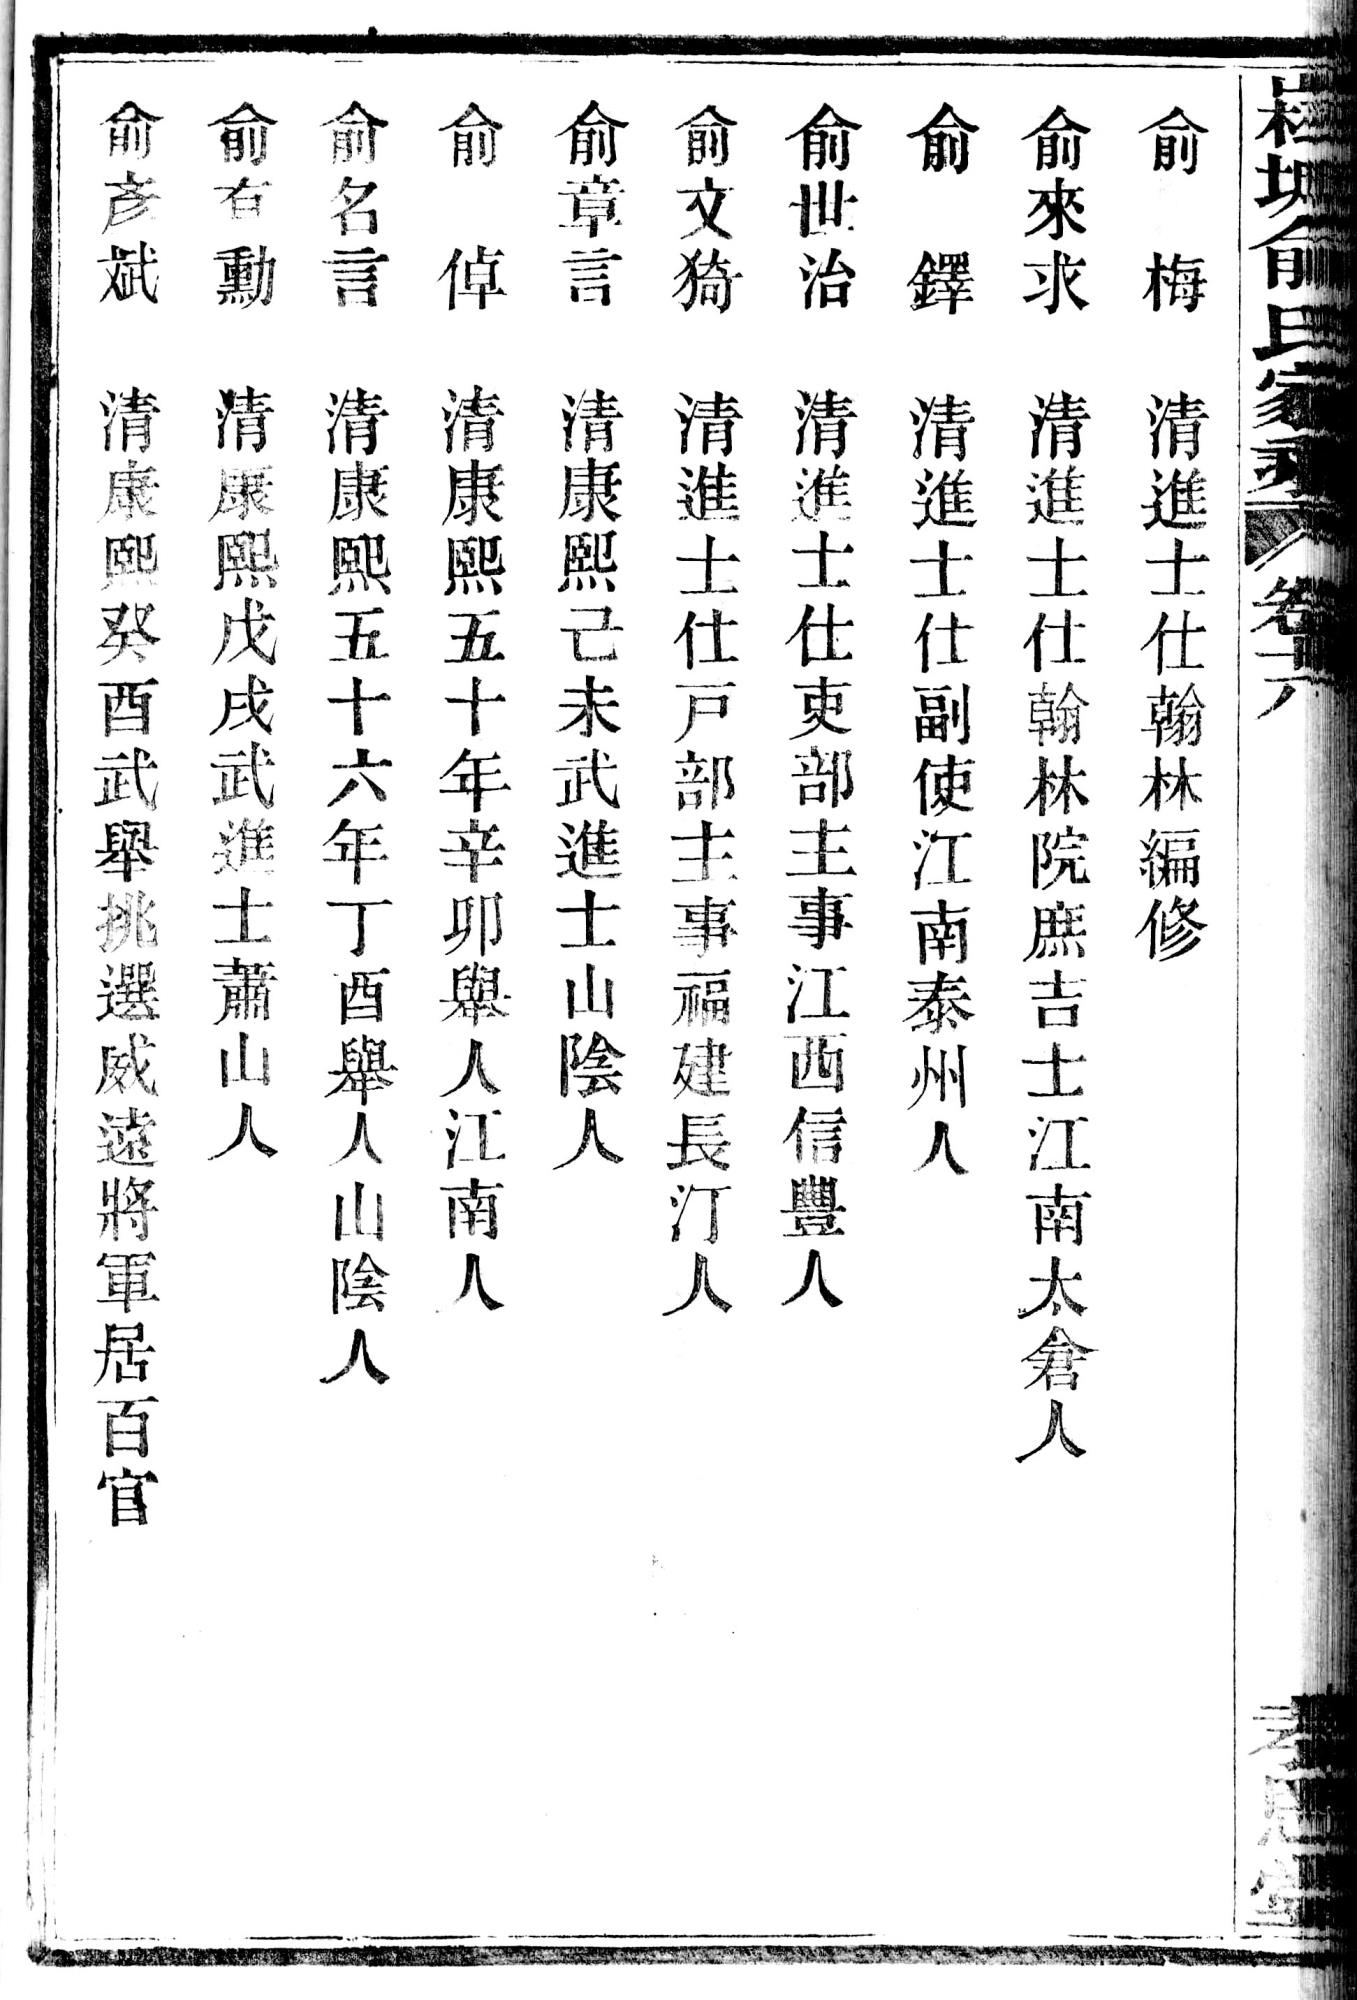 俞氏家乘 卷十八
俞 梅 清進士仕翰林編修
俞來求 清進士仕翰林院庶吉士江南太倉人
俞 鐸 清進士仕副使江南泰州人
俞世治 清進士仕吏部主事江西信豐人
俞文猗 清進士仕戸部主事福建長汀人
俞章言 清康熙己未武進士山陰人
俞 倬 清康熙五十年辛卯舉人江南人
俞名言 清康熙五十六年丁酉舉人山陰人
俞有勳 清康熙戊戌武進士蕭山人
俞彥斌 清康熙癸酉武舉挑選威遠將軍居百官